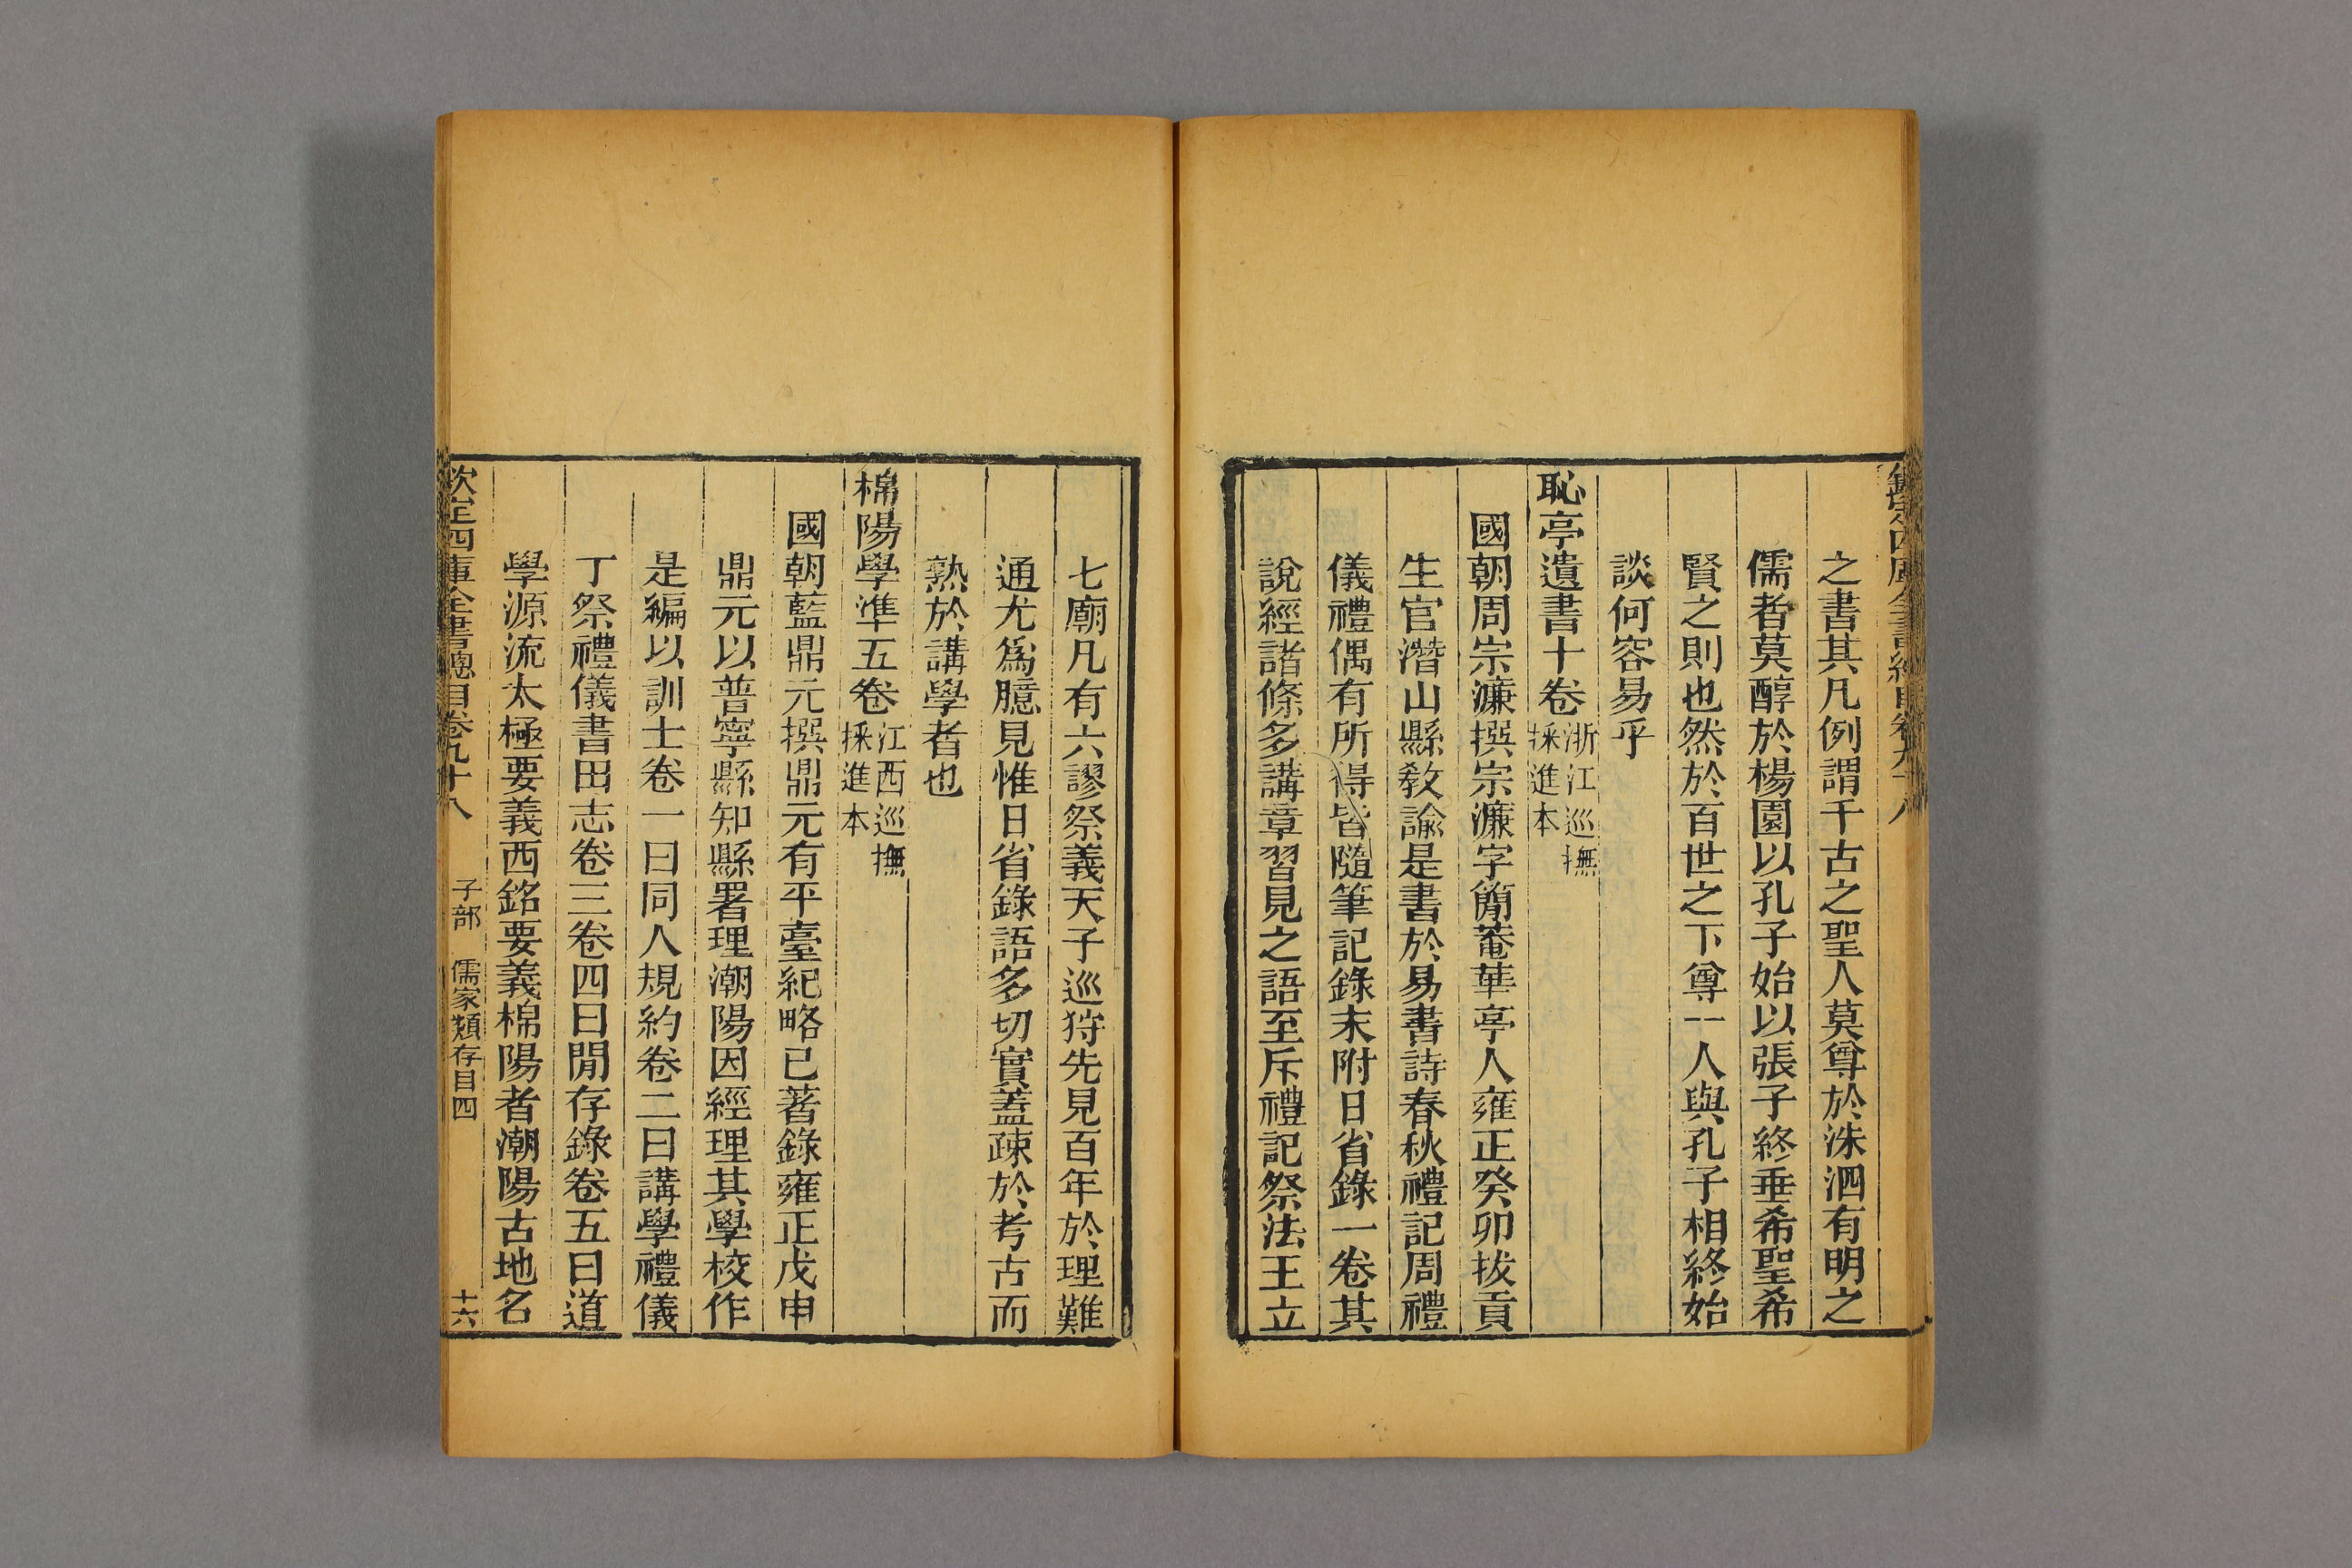 之書其凡例謂千古之聖人莫尊於洙泗有明之
儒者莫醇於楊園以孔子始以張子終垂希聖希
賢之則也然於百世之下尊一人與孔子相終始
談何容易乎
恥亭遺書十卷
浙江巡撫
採進本
國朝周宗濂撰宗濂字簡菴華亭人雍正癸卯拔貢
生官潛山縣教諭是書於易書詩春秋禮記周禮
儀禮偶有所得皆隨筆記錄末附日省錄一卷其
說經諸條多講章習見之語至斥禮記祭法王立
七廟凡有六謬祭義天子巡狩先見百年於理難
通尤為臆見惟日省錄語多切實蓋疎於考古而
熟於講學者也
棉陽學準五卷
江西巡撫
採進本
國朝藍鼎元撰鼎元有平臺紀略已著錄雍正戊申
鼎元以普寧縣知縣署理潮陽因經理其學校作
是編以訓士卷一曰同人規約卷二曰講學禮儀
丁祭禮儀書田志卷三卷四曰閒存錄卷五曰道
學源流太極要義西銘要義棉陽者潮陽古地名
欽定四庫全書總目卷九十八 子部 儒家類存目四 十六